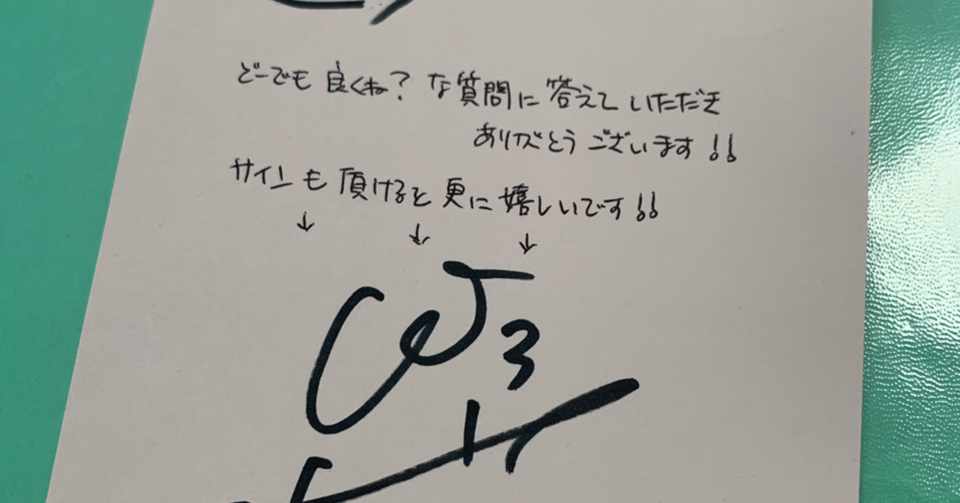 どーでも良くね?な質問に答えていただき
ありがとうございます!!
サインも頂けると更に嬉しいです!!
↓ ↓ ↓